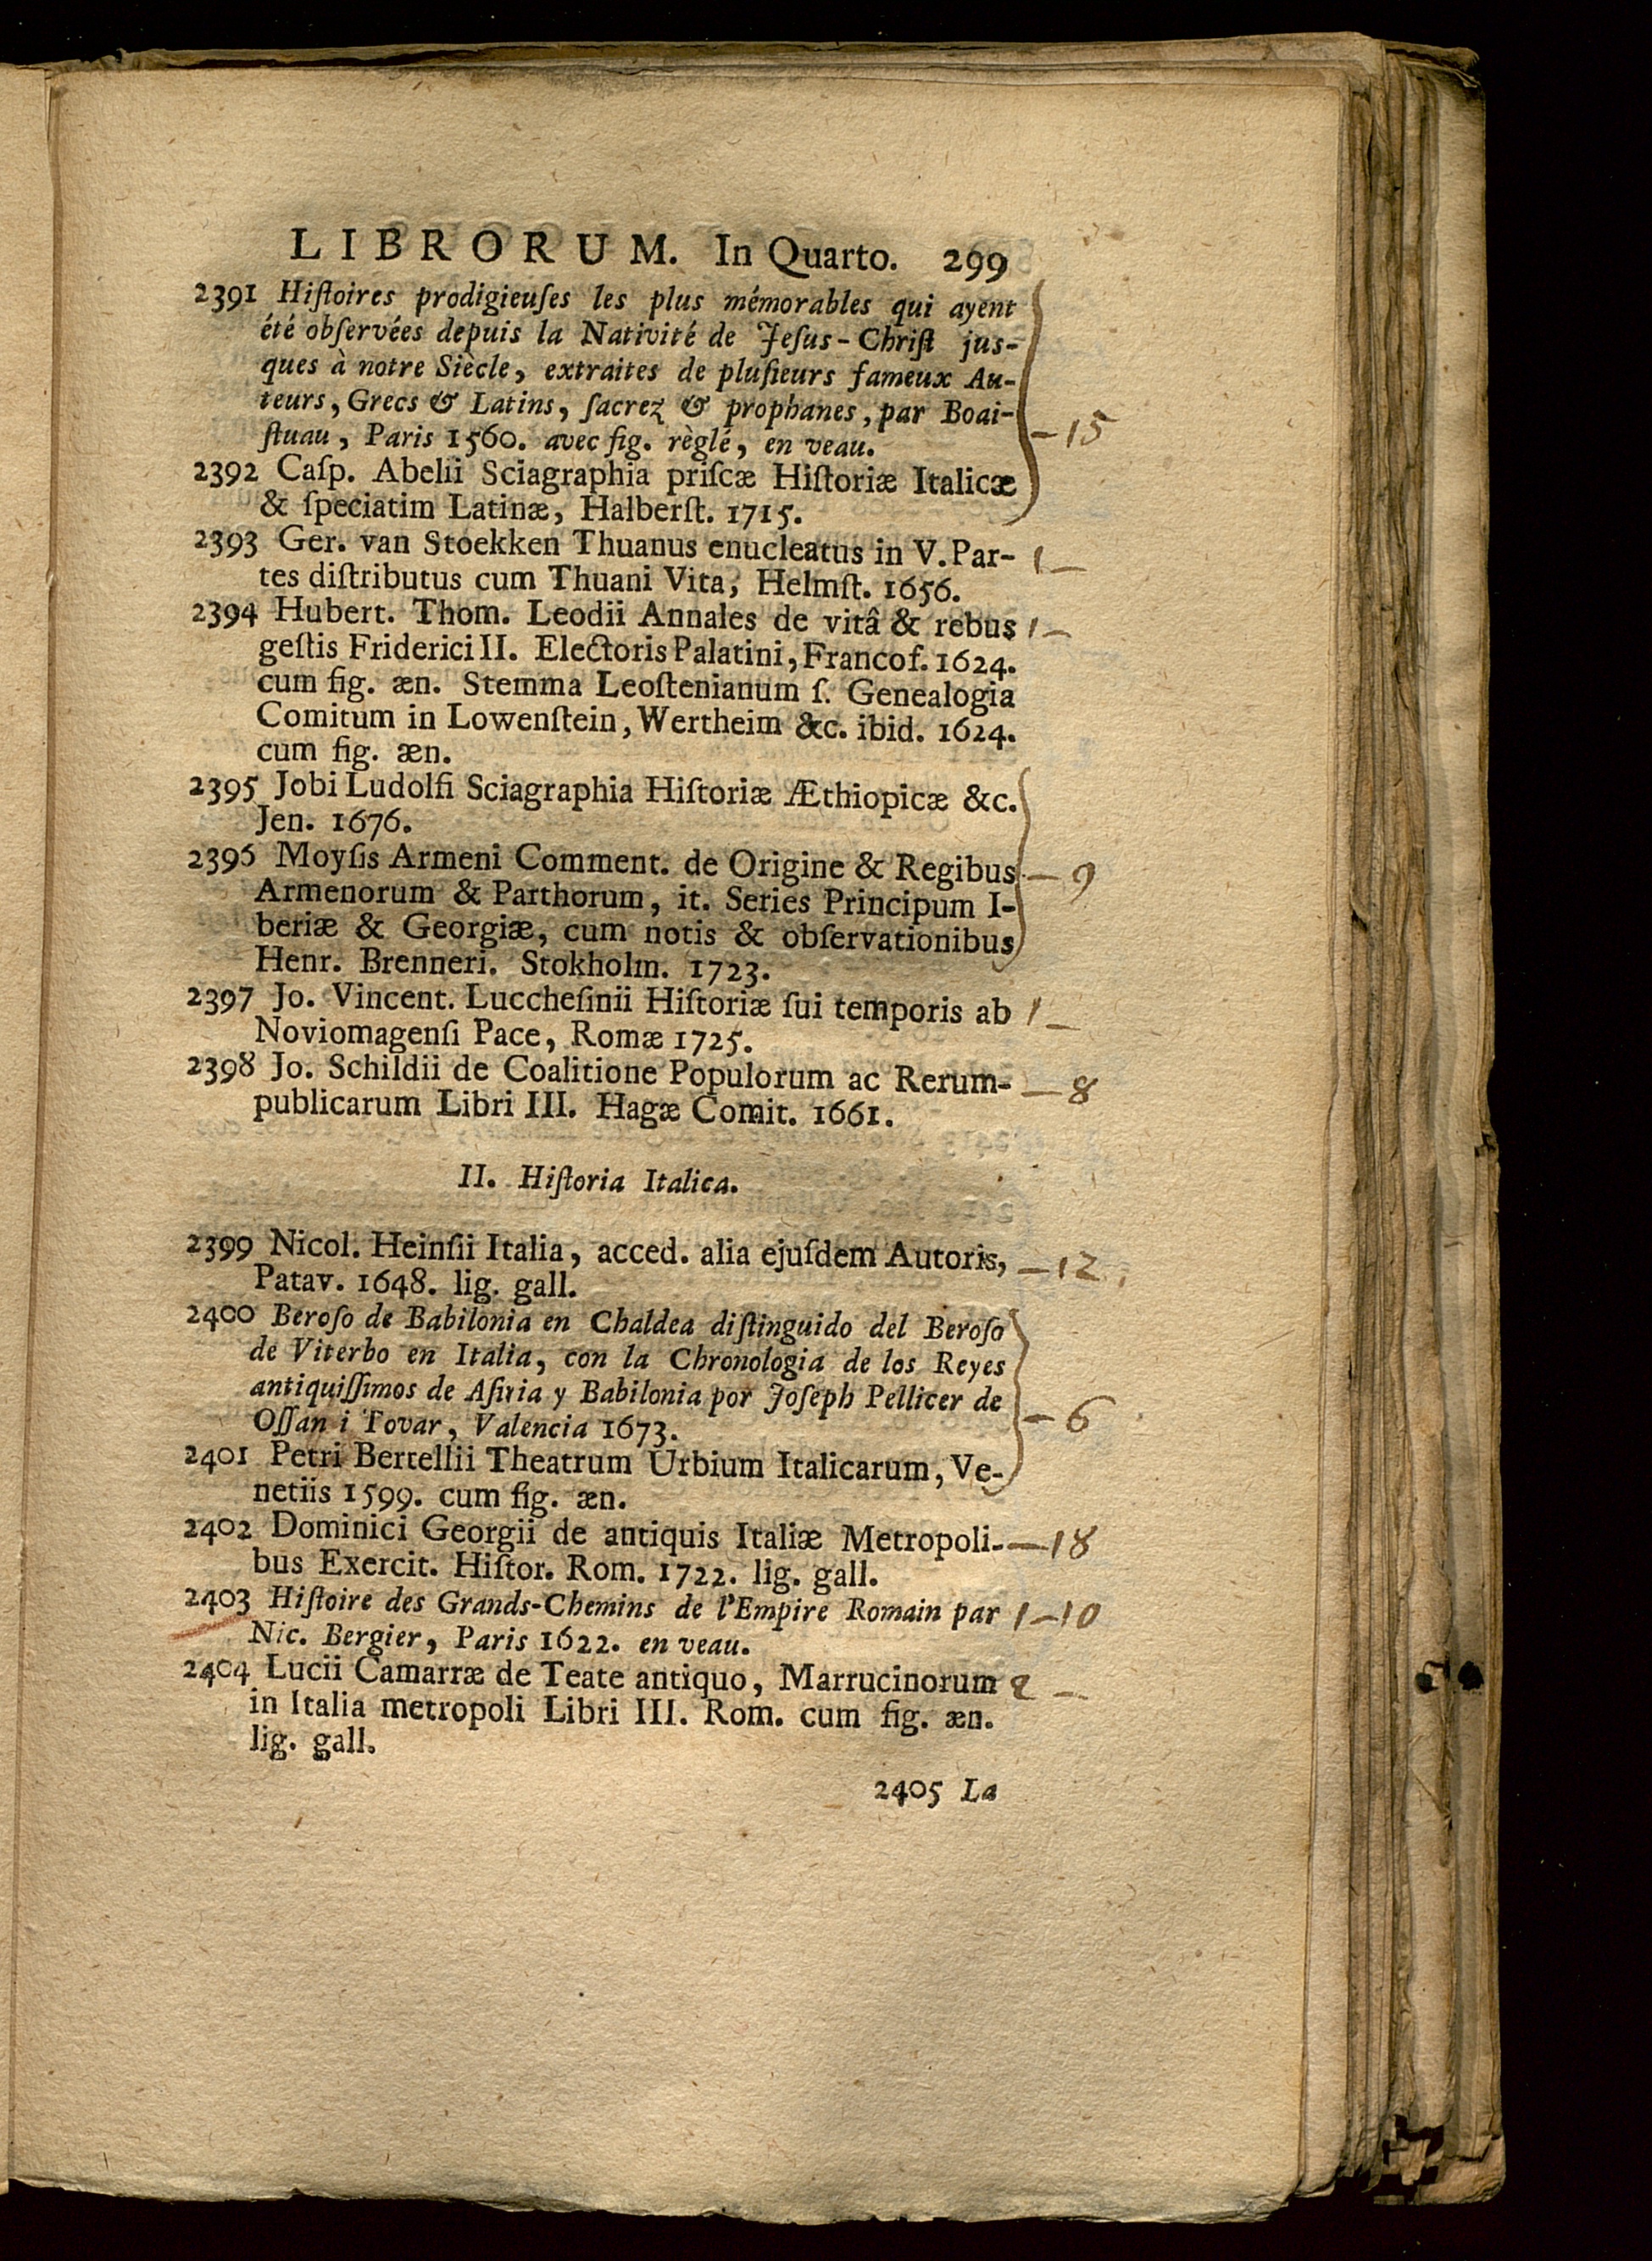 LIBRORUM. In Quarto. 299
2391 Hiſtoires prodigieuſes les plus mémorables qui ayent
été obſervées depuis la Nativité de Jeſus-Chriſt juſ-
ques à notre Siècle, extraites de pluſieurs fameux Au-
teurs, Grecs & Latins, ſacrez & prophanes, par Boai-
ſtuau, Paris 1560. avec fig. règlé, en veau. — 15
2392 Caſp. Abelii Sciagraphia priſcæ Hiſtoriæ Italicæ
& ſpeciatim Latinæ, Halberſt. 1715.
2393 Ger. van Stoekken Thuanus enucleatus in V. Par- 1 —
tes diſtributus cum Thuani Vita, Helmſt. 1656.
2394 Hubert. Thom. Leodii Annales de vitâ & rebus 1 —
geſtis Friderici II. Electoris Palatini, Francof. 1624.
cum fig. æn. Stemma Leoſtenianum ſ. Genealogia
Comitum in Lowenſtein, Wertheim &c. ibid. 1624.
cum fig. æn.
2395 Jobi Ludolfi Sciagraphia Hiſtoriæ Æthiopicæ &c.
Jen. 1676.
2396 Moyſis Armeni Comment. de Origine & Regibus — 9
Armenorum & Parthorum, it. Series Principum I-
beriæ & Georgiæ, cum notis & obſervationibus
Henr. Brenneri. Stokholm. 1723.
2397 Jo. Vincent. Luccheſinii Hiſtoriæ ſui temporis ab 1 —
Noviomagenſi Pace, Romæ 1725.
2398 Jo. Schildii de Coalitione Populorum ac Rerum- — 8
publicarum Libri III. Hagæ Comit. 1661.
II. Hiſtoria Italica.
2399 Nicol. Heinſii Italia, acced. alia ejuſdem Autoris, — 12
Patav. 1648. lig. gall.
2400 Beroſo de Babilonia en Chaldea diſtinguido del Beroſo
de Viterbo en Italia, con la Chronologia de los Reyes
antiquiſſimos de Aſiria y Babilonia por Joſeph Pellicer de
Oſſan i Tovar, Valencia 1673. — 6
2401 Petri Bertellii Theatrum Urbium Italicarum, Ve-
netiis 1599. cum fig. æn.
2402 Dominici Georgii de antiquis Italiæ Metropoli- — 18
bus Exercit. Hiſtor. Rom. 1722. lig. gall.
2403 Hiſtoire des Grands-Chemins de l'Empire Romain par 1 — 10
Nic. Bergier, Paris 1622. en veau.
2404 Lucii Camarræ de Teate antiquo, Marrucinorum 2 —
in Italia metropoli Libri III. Rom. cum fig. æn.
lig. gall.
2405 La